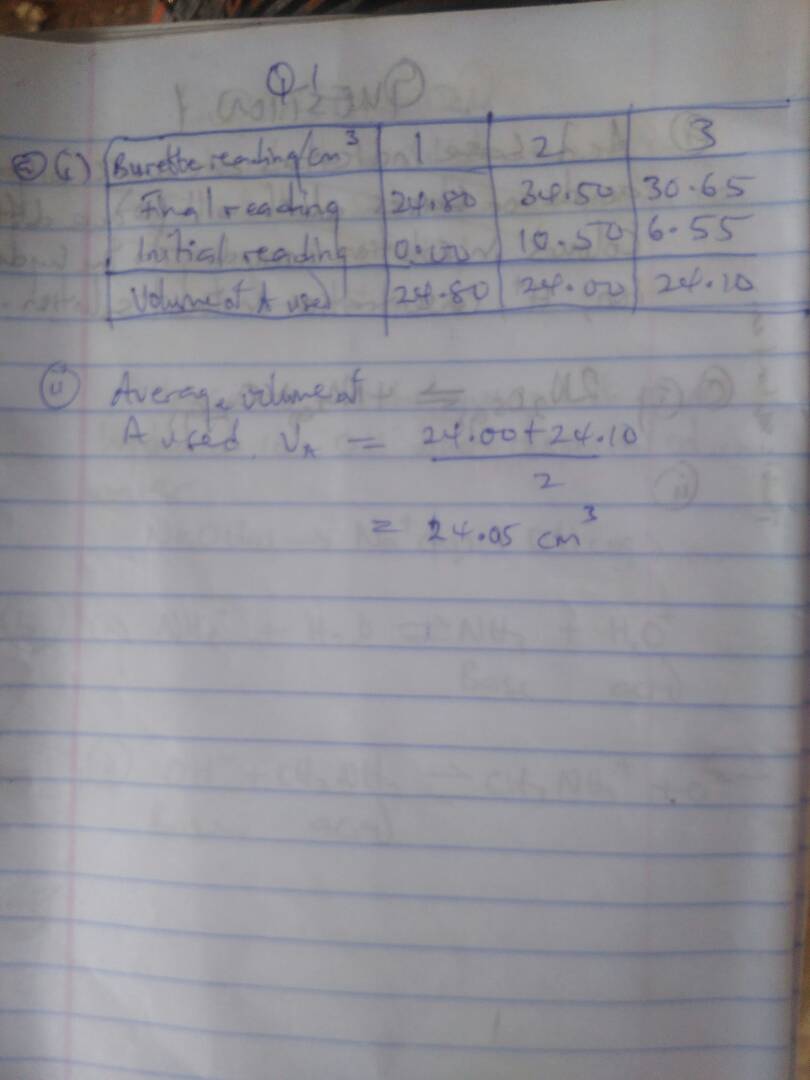 Q1
(i) Burette reading/cm³ 1 2 3
Final reading 24.80 34.50 30.65
Initial reading 0.00 10.50 6.55
Volume of A used 24.80 24.00 24.10
(ii) Average volume of
A used V_A = 24.00+24.10
2
= 24.05 cm³